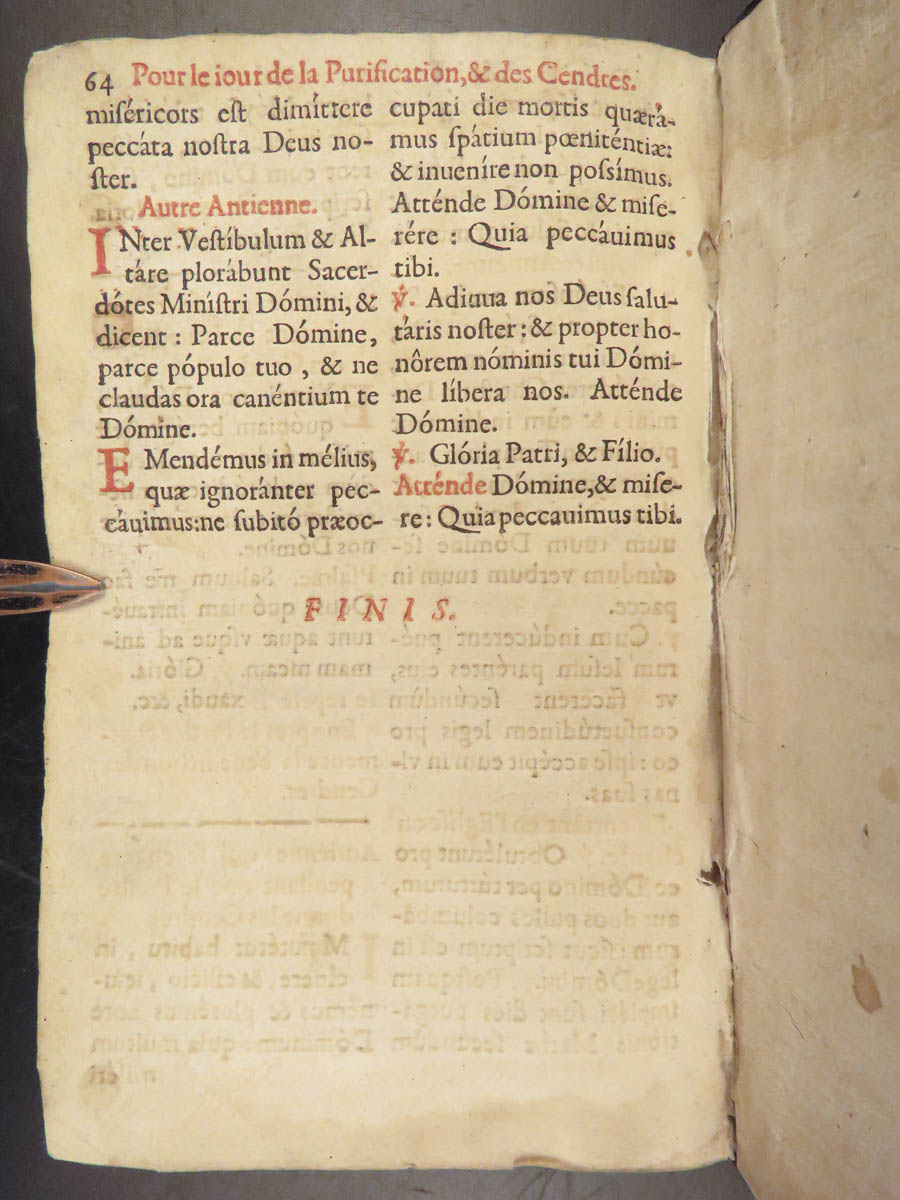 64 Pour le iour de la Purification, & des Cendres.
miſéricors eſt dimíttere
peccáta noſtra Deus no-
ſter.
Autre Antienne.
INter Veſtíbulum & Al-
táre plorábunt Sacer-
dótes Miníſtri Dómini, &
dicent : Parce Dómine,
parce pópulo tuo , & ne
claudas ora canéntium te
Dómine.
EMendémus in mélius,
quæ ignoránter pec-
cáuimus:ne ſubitó præoc-
cupati die mortis quærá-
mus ſpátium pœniténtiæ:
& inueníre non poſsímus.
Atténde Dómine & miſe-
rére : Quia peccáuimus
tibi.
℣. Adiuua nos Deus ſalu-
táris noſter : & propter ho-
nôrem nóminis tui Dómi-
ne líbera nos. Atténde
Dómine.
℣. Glória Patri, & Fílio.
Atténde Dómine,& miſe-
re : Quia peccauimus tibi.
FINIS.